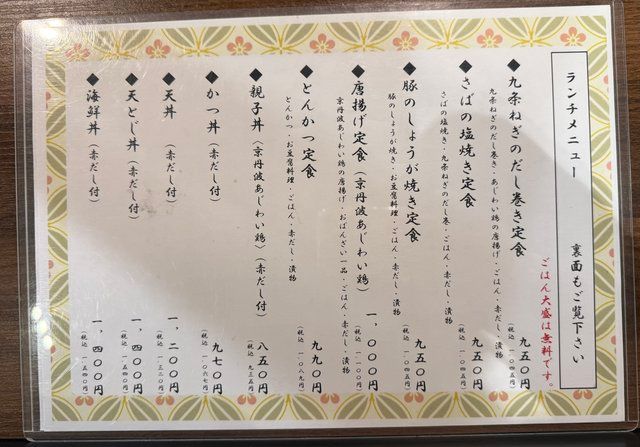 ランチメニュー 裏面もご覧下さい
ごはん大盛は無料です。
◆九条ねぎのだし巻き定食 九五〇円
九条ねぎのだし巻き・あじわい鶏の唐揚げ・ごはん・赤だし・漬物 (税込 一〇四五円)
◆さばの塩焼き定食 九五〇円
さばの塩焼き・九条ねぎだし巻・ごはん・赤だし・漬物 (税込 一〇四五円)
◆豚のしょうが焼き定食 九五〇円
豚のしょうが焼き・お豆腐料理・ごはん・赤だし・漬物 (税込 一〇四五円)
◆唐揚げ定食(京丹波あじわい鶏) 一、〇〇〇円
京丹波あじわい鶏の唐揚げ・おばんざい一品・ごはん・赤だし・漬物
◆とんかつ定食 九九〇円
とんかつ・お豆腐料理・ごはん・赤だし・漬物 (税込 一〇八九円)
◆親子丼(京丹波あじわい鶏)(赤だし付) 八五〇円
(税込 九三五円)
◆かつ丼(赤だし付) 九七〇円
(税込 一〇六七円)
◆天丼(赤だし付) 一、二〇〇円
(税込 一三二〇円)
◆天とじ丼(赤だし付) 一、四〇〇円
(税込 一五四〇円)
◆海鮮丼(赤だし付) 一、四〇〇円
(税込 一五四〇円)